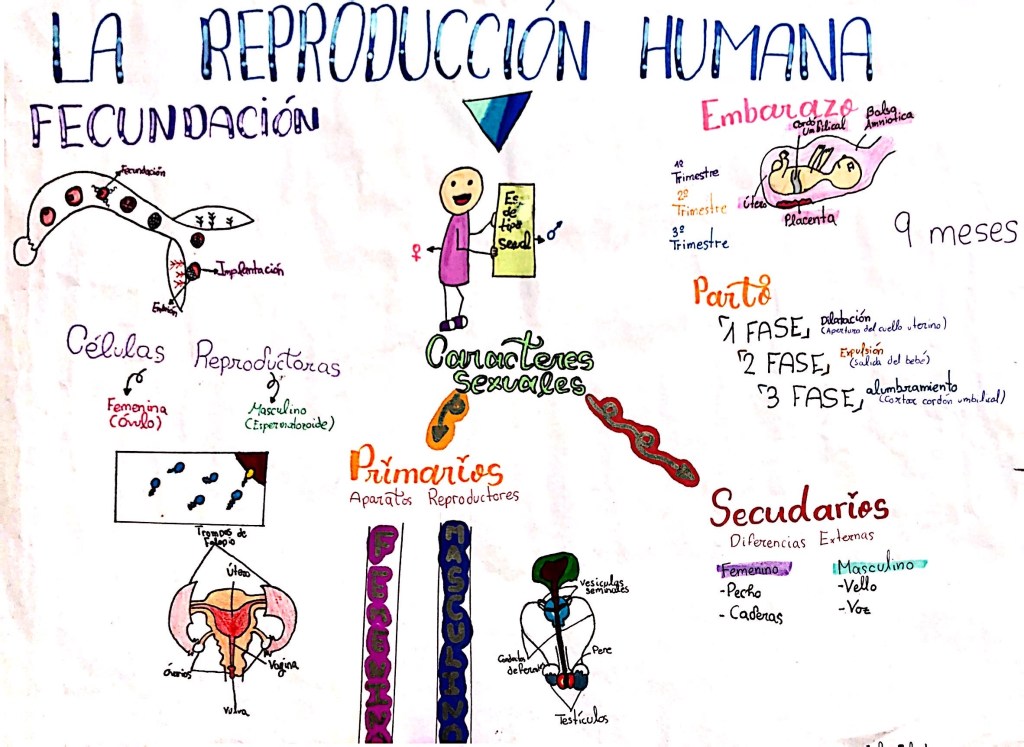 LA REPRODUCCIÓN HUMANA
FECUNDACIÓN
Fecundación
Implantación
Embrión
Células Reproductoras
Femenina
(Óvulo)
Masculino
(Espermatozoide)
Trompas de
Falopio
Útero
Óvarios
Vagina
Vulva
Es
de
tipo
sexual
♀
♂
Caracteres
Sexuales
Primarios
Aparatos Reproductores
FEMENINO
MASCULINO
Vesiculas
seminales
deferente
Pene
Testículos
Embarazo
Cordó
Umbilical
Bolsa
Amniotica
Útero
Placenta
1º
Trimestre
2º
Trimestre
3º
Trimestre
9 meses
Parto
1 FASE
Dilatación
(Apertura del cuello uterino)
2 FASE
Expulsión
(Salida del bebé)
3 FASE
alumbramiento
(Cortar cordón umbilical)
Secudarios
Diferencias Externas
Femenino
-Pecho
-Caderas
Masculino
-Vello
-Voz